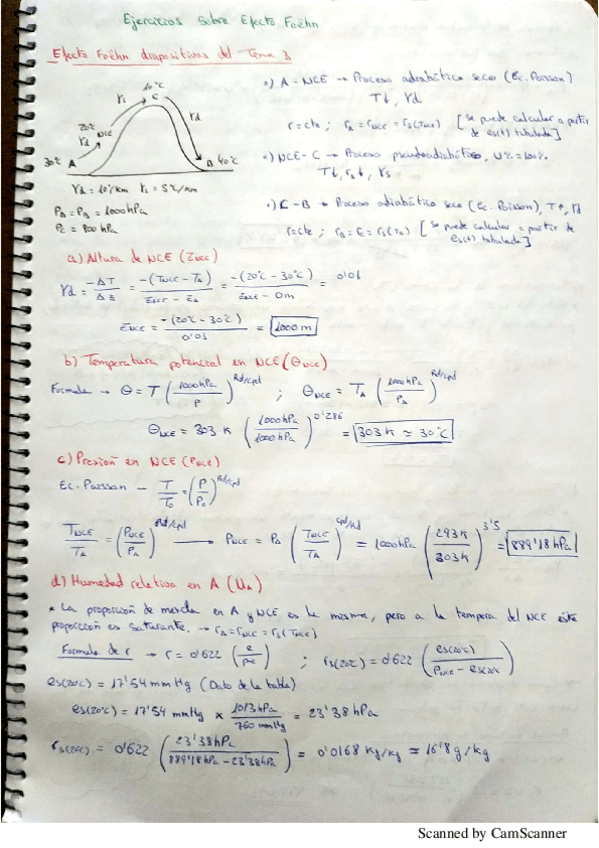 Ejercicios sobre Efecto Foëhn
Efecto Foëhn diapositivas del Tema 3
10ºC
C
γs
γd
20ºC
NCE
γd
30ºC A
B 40ºC
γd = 10º/km γs = 5ºC/km
PA = PB = 1000 hPa
Pc = 800 hPa
•) A - NCE → Proceso adiabático seco (Ec. Poisson)
T↓, γd
r = cte ; rA = rNCE = rs(TNCE) [se puede calcular a partir de es(t) tabulada]
•) NCE - C → Proceso pseudoadiabático, U% = 100%
T↓, rs↓, γs
•) C - B → Proceso adiabático seco (Ec. Poisson), T↑, γd
r = cte ; [se puede calcular a partir de es(t) tabulada]
a) Altura de NCE (ZNCE)
γd = -ΔT/ΔZ = -(TNCE - TA)/(ZNCE - ZA) = -(20ºC - 30ºC)/(ZNCE - 0m) = 0'01
ZNCE = -(20ºC - 30ºC)/0'01 = 1000 m
b) Temperatura potencial en NCE (θNCE)
Formula → θ = T (1000 hPa/P)^Rd/cpd ; θNCE = TA (1000 hPa/PA)^Rd/cpd
θNCE = 303 K (1000 hPa/1000 hPa)^0'286 = 303 K ≃ 30ºC
c) Presión en NCE (PNCE)
Ec. Poisson - T/T0 = (P/P0)^Rd/cpd
TNCE/TA = (PNCE/PA)^Rd/cpd → PNCE = PA (TNCE/TA)^cpd/Rd = 1000 hPa (293K/303K)^3'5 = 889'18 hPa
d) Humedad relativa en A (UA)
• La proporción de mezcla en A y NCE es la misma, pero a la tempera del NCE esta
proporción es saturante. → rA = rNCE = rs(TNCE)
Formula de r → r = 0'622 (e/p-e) ; rs(20ºC) = 0'622 (es(20ºC)/PNCE - es(20ºC))
es(20ºC) = 17'54 mmHg (Dato de la tabla)
es(20ºC) = 17'54 mmHg × 1013 hPa/760 mmHg = 23'38 hPa
rs(20ºC) = 0'622 (23'38 hPa/889'18 hPa - 23'38 hPa) = 0'0168 Kg/Kg ≃ 16'8 g/kg
Scanned by CamScanner